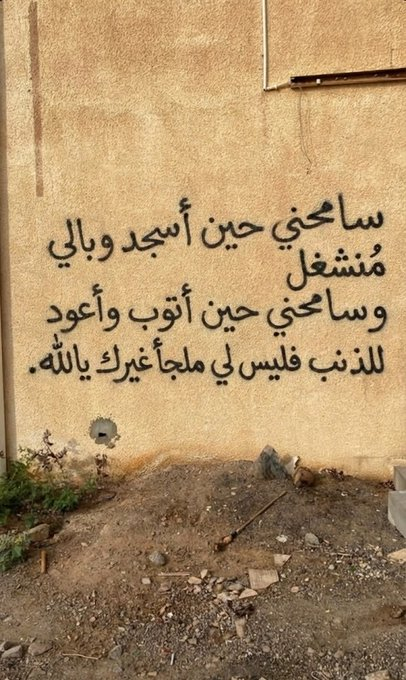 سامحني حين أسجد وبالي
مُنشغل
وسامحني حين أتوب وأعود
للذنب فليس لي ملجأ غيرك يالله.